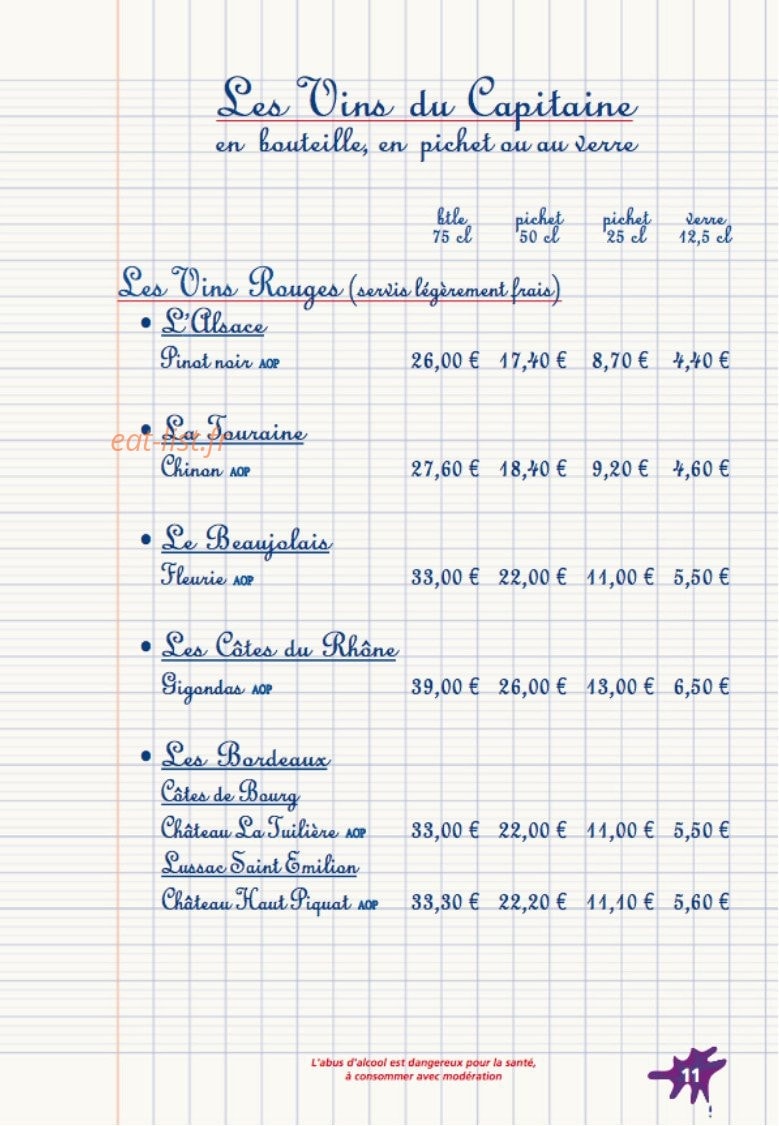 Les Vins du Capitaine
en bouteille, en pichet ou au verre
btle pichet pichet verre
75 cl 50 cl 25 cl 12,5 cl
Les Vins Rouges (servis légèrement frais)
• L'Alsace
Pinot noir AOP 26,00 € 17,40 € 8,70 € 4,40 €
• La Touraine
eat-list.fr
Chinon AOP 27,60 € 18,40 € 9,20 € 4,60 €
• Le Beaujolais
Fleurie AOP 33,00 € 22,00 € 11,00 € 5,50 €
• Les Côtes du Rhône
Gigondas AOP 39,00 € 26,00 € 13,00 € 6,50 €
• Les Bordeaux
Côtes de Bourg
Château La Tuilière AOP 33,00 € 22,00 € 11,00 € 5,50 €
Lussac Saint Emilion
Château Haut Piquat AOP 33,30 € 22,20 € 11,10 € 5,60 €
L'abus d'alcool est dangereux pour la santé,
à consommer avec modération
11